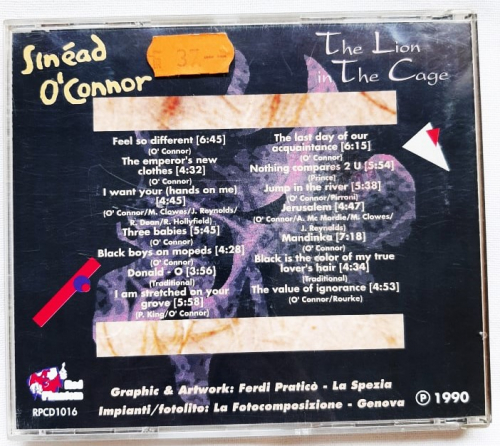 Sinéad
O'Connor
37.-
The Lion
in The Cage
Feel so different [6:45]
(O' Connor)
The emperor's new
clothes [4:32]
(O' Connor)
I want your (hands on me)
[4:45]
(O' Connor/M. Clowes/J. Reynolds/
R. Dean/R. Hollyfield)
Three babies [5:45]
(O' Connor)
Black boys on mopeds [4:28]
(O' Connor)
Donald - O [3:56]
(Traditional)
I am stretched on your
grove [5:58]
(P. King/O' Connor)
The last day of our
acquaintance [6:15]
(O' Connor)
Nothing compares 2 U [5:54]
(Prince)
Jump in the river [5:38]
(O' Connor/Pirroni)
Jerusalem [4:47]
(O' Connor/A. Mc Mordie/M. Clowes/
J. Reynolds)
Mandinka [7:18]
(O' Connor)
Black is the color of my true
lover's hair [4:34]
(Traditional)
The value of ignorance [4:53]
(O' Connor/Rourke)
Red
Phantom
RPCD1016
Graphic & Artwork: Ferdi Praticò - La Spezia
Impianti/fotolito: La Fotocomposizione - Genova
℗ 1990